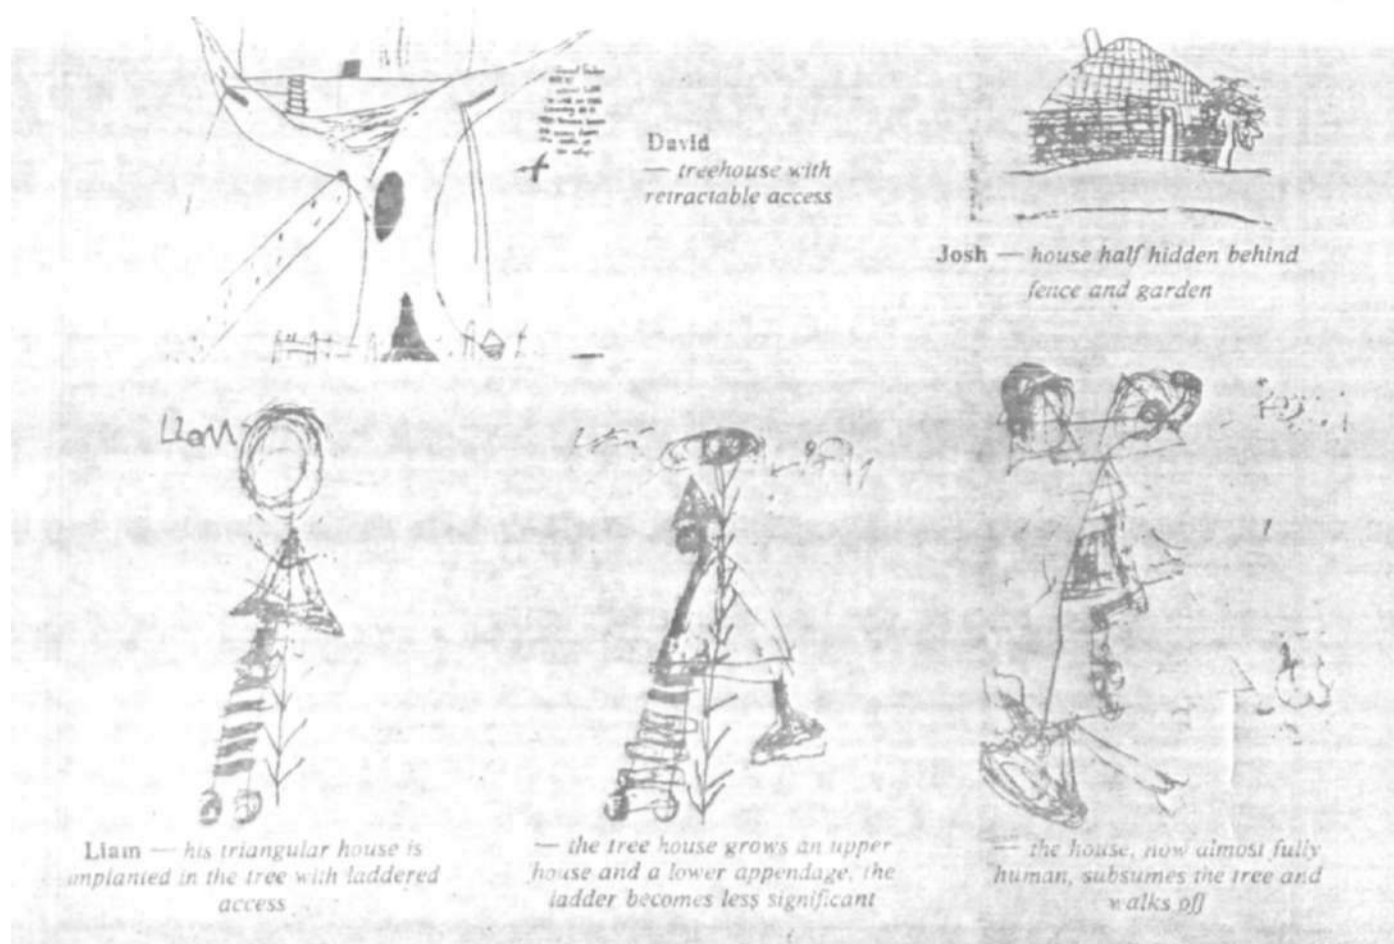 David
— treehouse with
retractable access
Josh — house half hidden behind
fence and garden
Liam
Liam — his triangular house is
implanted in the tree with laddered
access
— the tree house grows an upper
house and a lower appendage, the
ladder becomes less significant
— the house, now almost fully
human, subsumes the tree and
walks off